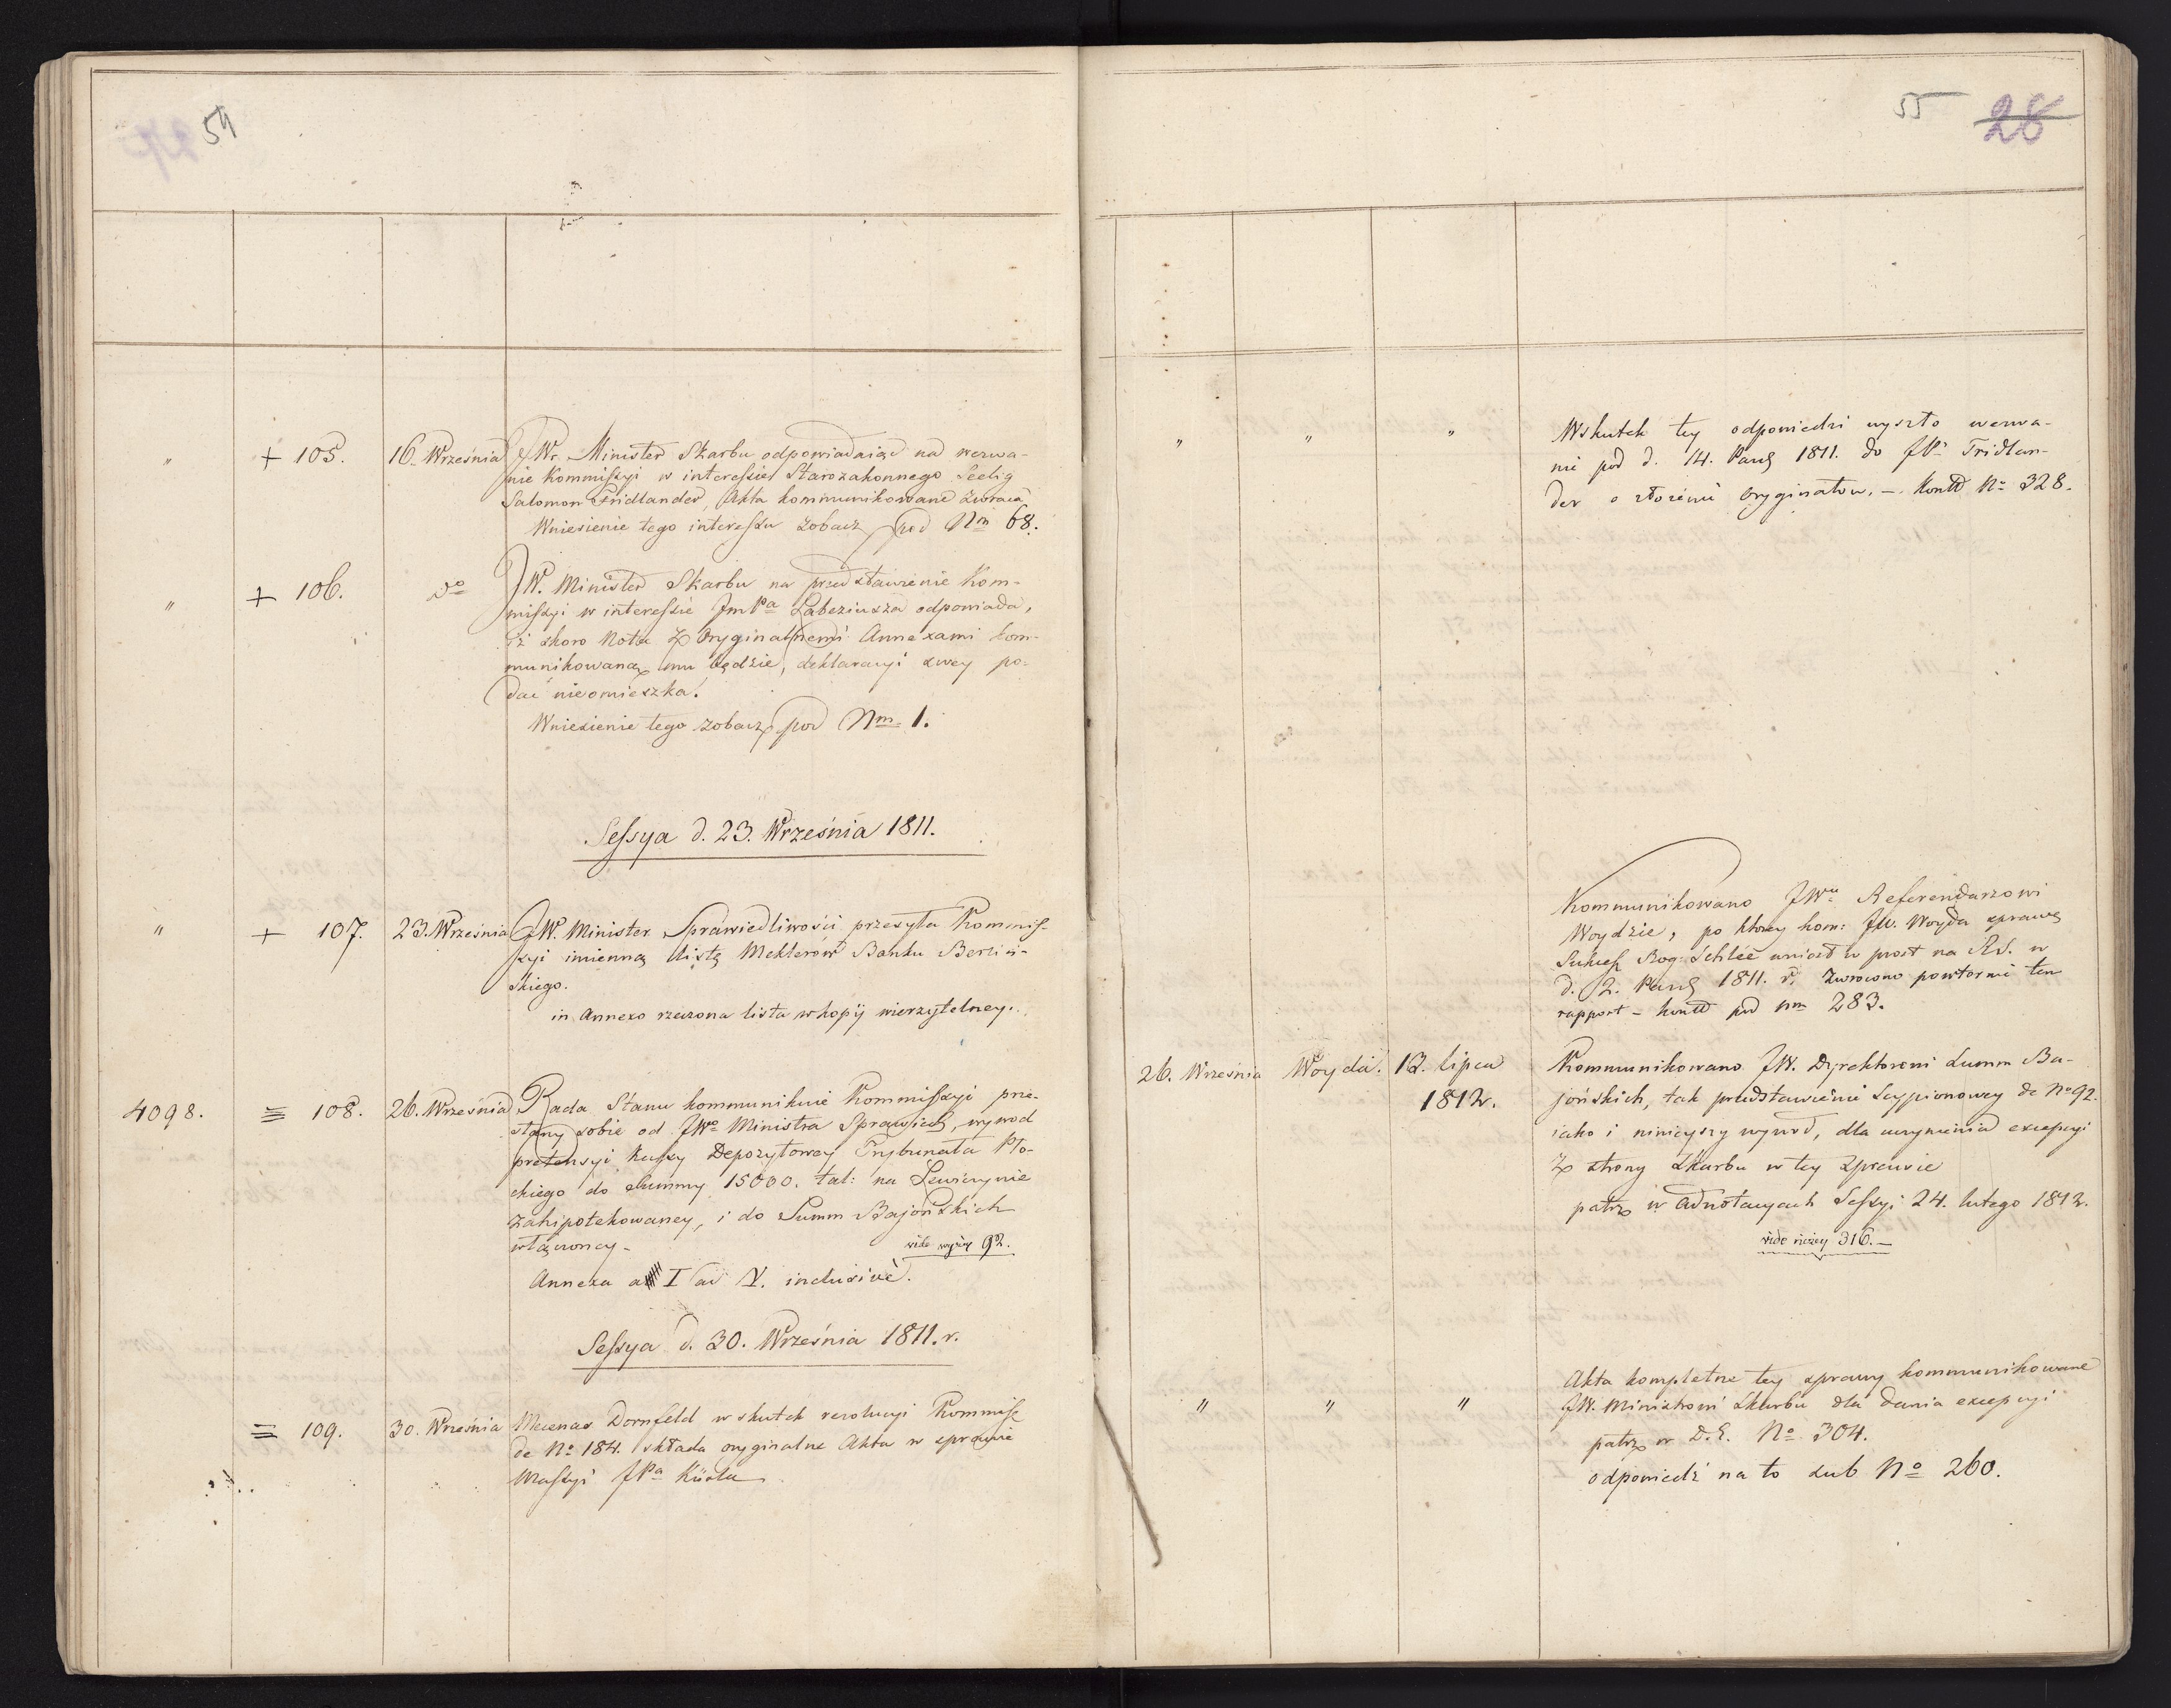 54
" + 105. 16. Września JWr. Minister Skarbu odpowiadaiąc na wezwa-
nie Kommissyi w interessie Starozakonnego Seelig
Salomon Fridlander, Akta kommunikowane zwraca
Wniesienie tego interessu zobacz pod Nm 68.
" + 106. do JW. Minister Skarbu na przedstawienie Kom-
missyi w interessie JmPa Labeziusza odpowiada,
iż skoro Nota z Oryginalnemi Annexami kom-
munikowaną mu będzie, deklaracyi swey po-
dać nieomieszka.
Wniesienie tego zobacz pod Nm 1.
Sessya d. 23. Września 1811.
" + 107. 23. Września JW. Minister Sprawiedliwości przesyła Kommis-
syi imienną listę Meklerów Banku Berliń-
skiego.
in Annexo rzeczona lista w kopij wierzytelney.
4098. = 108. 26. Września Rada Stanu kommunikuie Kommissyi prze-
słany sobie od JWo Ministra Sprawied, wywod
pretensyi Kassy Depozytowey Trybunału Pło-
ckiego do Summy 15000. tal: na Lewiczynie
zahipotekowaney, i do Summ Bajońskich
włączoney -
vide wyżey 92.
Annexa a I ad V. inclusive.
Sessya d. 30. Września 1811. r.
= 109. 30. Września Mecenas Dornfeld w skutek rezolucyi Kommiss
de No 184. składa oryginalne Akta w sprawie
Massyi JPa Küsta
55 28
" " " Wskutek tey odpowiedzi wyszło wezwa-
nie pod d. 14. Paźd 1811. do JPa Fridlan-
der o złożenie Oryginałów. - Kontt No 328.
Kommunikowano JWu Referendarzowi
Woydzie, po ktorey kom: JW. Woyda sprawę
Sukces Bog: Schlee wniosł w prost na RS. w
d. 2. Paźd 1811. r. Zwrocono powtornie ten
rapport - kontt pod nm 283.
26. Września Woyda. 13. lipca
1812.
Kommunikowano JW. Dyrektorowi Summ Ba-
jońskich, tak przedstawienie Scypionowey de No 92.
iako i ninieyszy wywod, dla uczynienia excepcyi
z strony Skarbu w tey sprawie
patrz w Adnotacyach Sessyi 24. lutego 1812.
vide niżey 316. -
" " " Akta kompletne tey sprawy kommunikowane
JW. Ministrowi Skarbu dla dania excepcyi
patrz w D.E. No 304.
odpowiedź na to sub No 260.